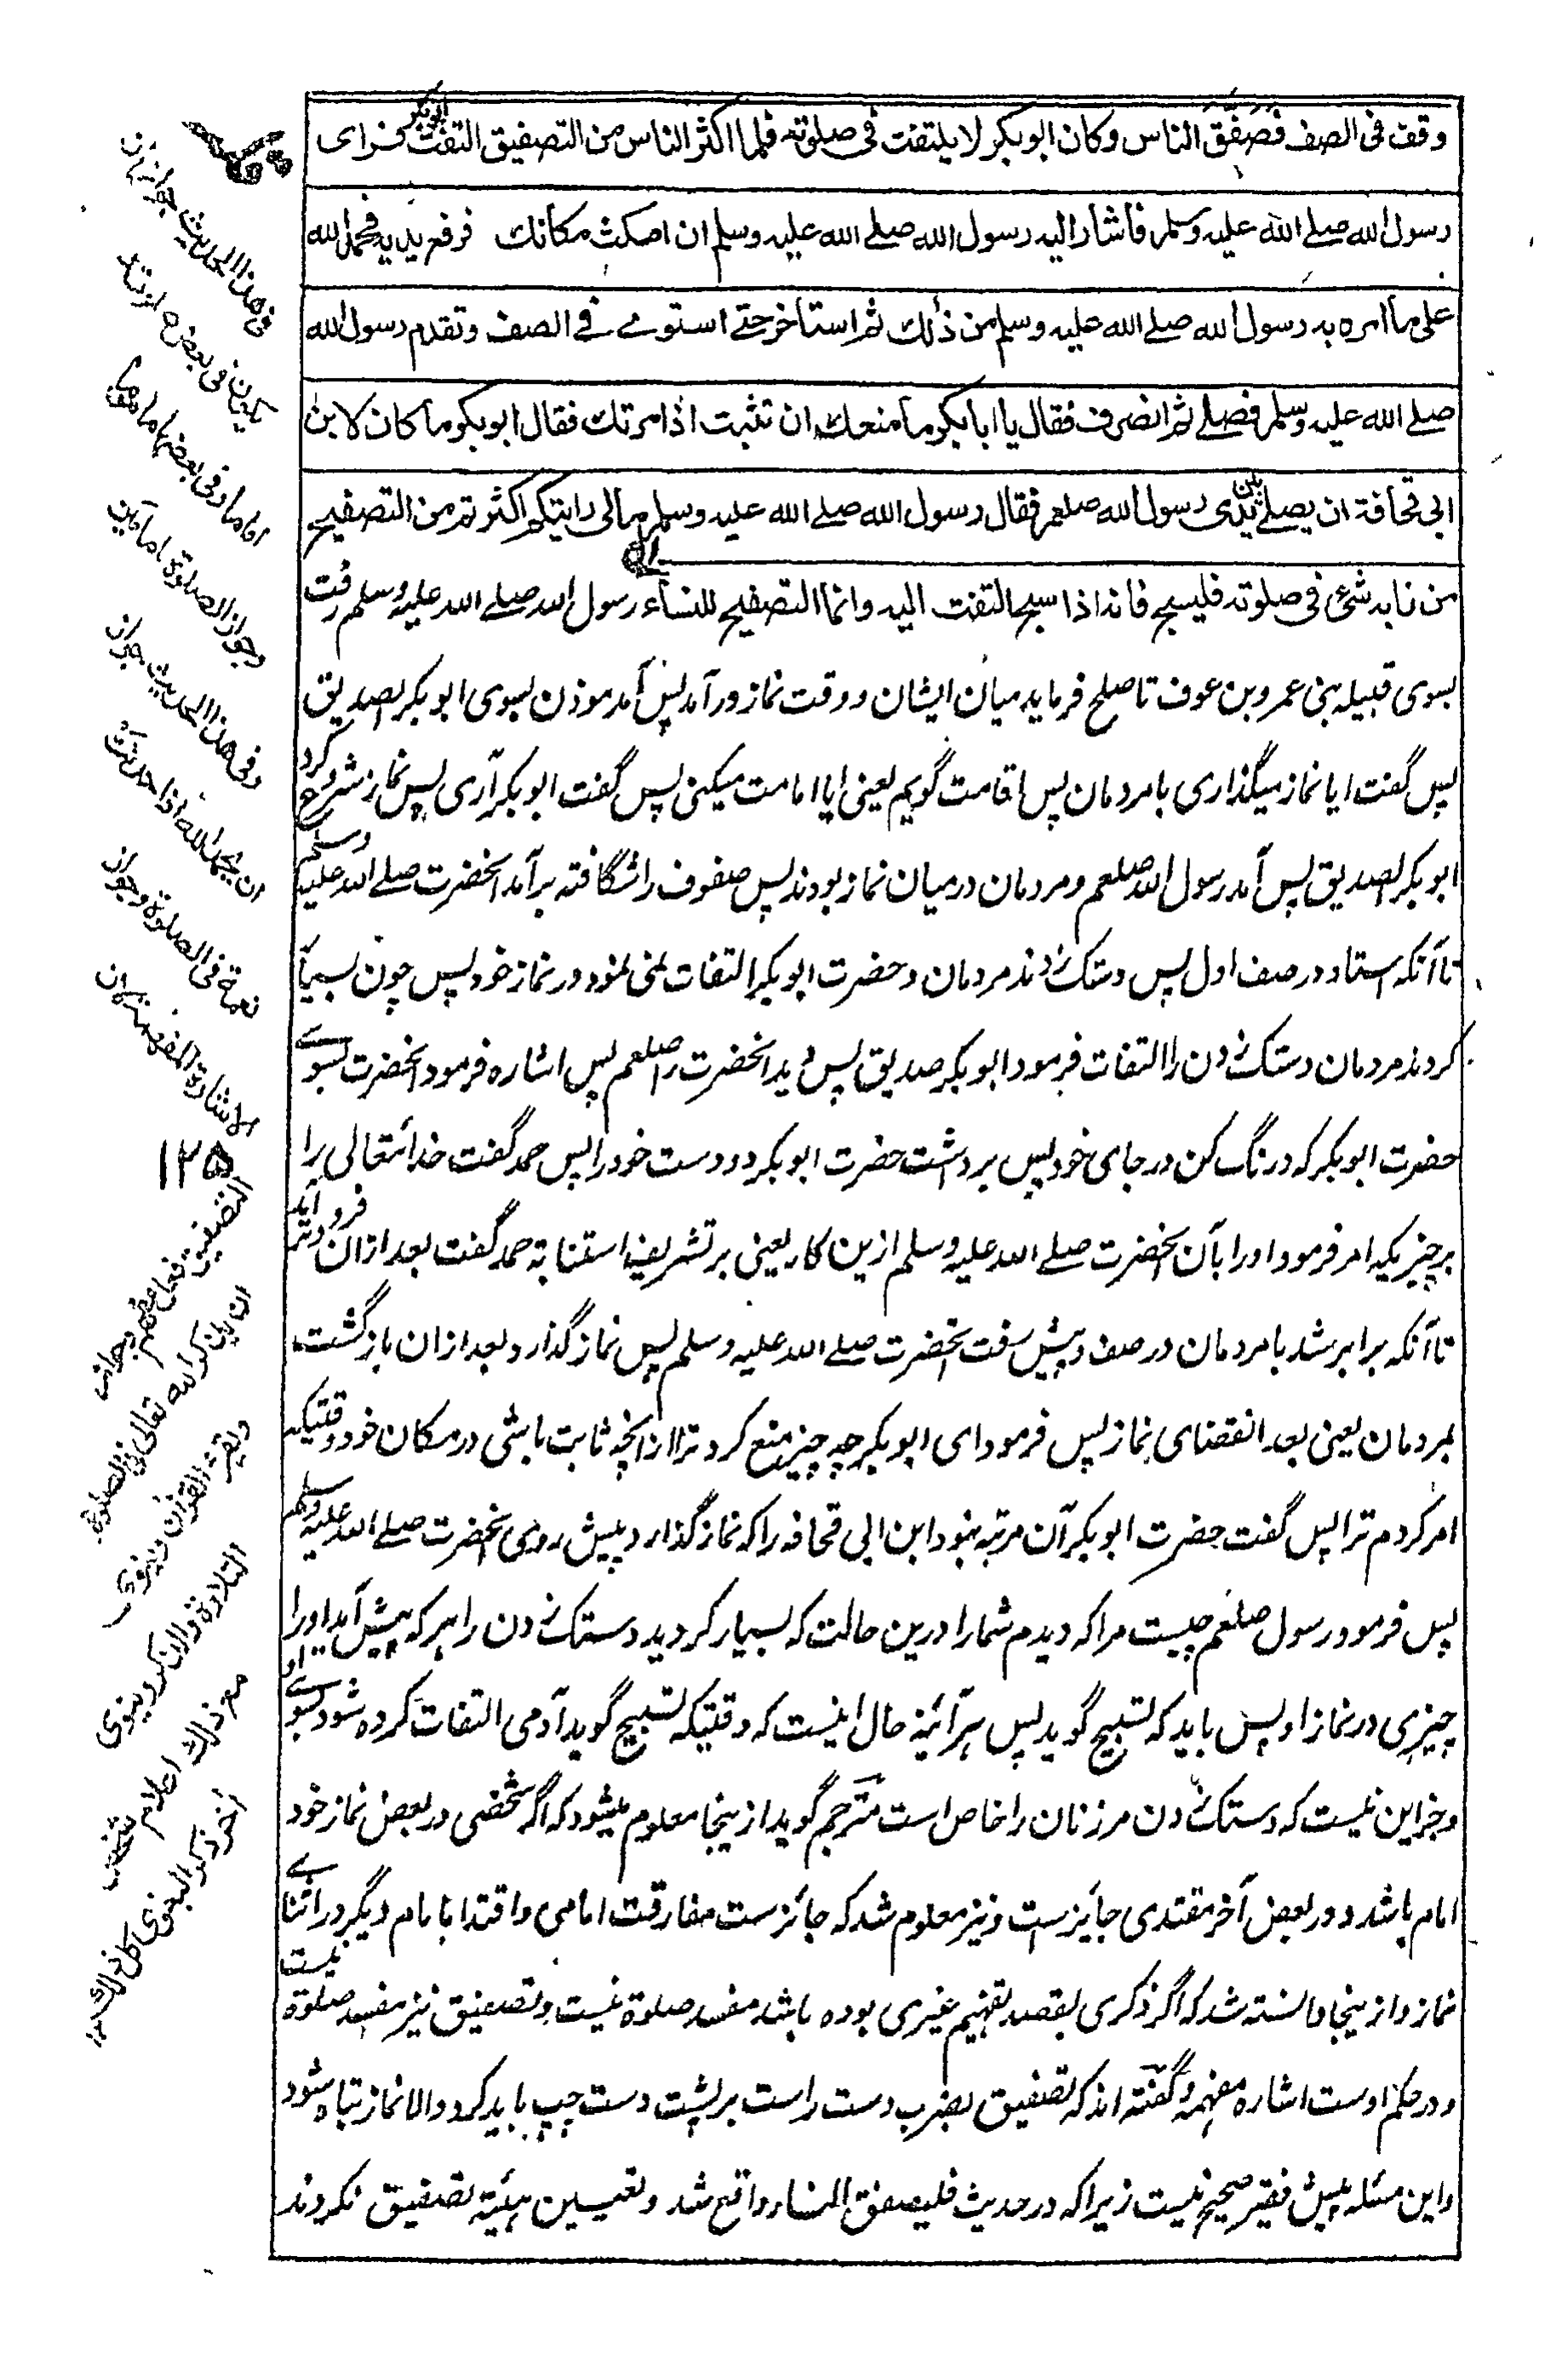 وقف فى الصف فصفق الناس وكان ابوبكر لا يلتفت فى صلوته فلما اكثر الناس من التصفيق التفت ابوبكر فراى
رسول الله صلے الله عليه وسلم فاشار اليه رسول الله صلے الله عليه وسلم ان امكث مكانك فرفع يديه فحمد الله
على ما امره به رسول الله صلے الله عليه وسلم من ذلك ثم استاخر حتے استوے فے الصف وتقدم رسول الله
صلے الله عليه وسلم فصلے ثم انصرف فقال يا ابابكر ما منعك ان تثبت اذا مرتك فقال ابوبكر ما كان لابن
ابى قحافة ان يصلے بين يدى رسول الله صلعم فقال رسول الله صلے الله عليه وسلم مالى رايتكم اكثرتم من التصفيح
من نابه شئ فى صلوته فليسبح فانه اذا سبح التفت اليه وانما التصفيح للنساء رسول الله صلے الله عليه وسلم رفت
بسوی قبیله بنی عمرو بن عوف تا صلح فرماید میان ایشان و وقت نماز در آمد پس آمد موذن بسوی ابوبکر الصدیق
پس گفت ایا نماز میگذاری بامردمان پس اقامت گویم یعنی ایا امامت میکنی پس گفت ابوبکر آری پس نماز شروع کرد
ابوبکر الصدیق پس آمد رسول الله صلعم و مردمان درمیان نماز بودند پس صفوف را شگافته برآمد آنحضرت صلے الله علیه وسلم
تا آنکه استاد در صف اول پس دستک زدند مردمان و حضرت ابوبکر التفات نمی نمود در نماز خود پس چون بسیار
کردند مردمان دستک زدن را التفات فرمود ابوبکر صدیق پس دید آنحضرت را صلعم پس اشاره فرمود آنحضرت بسوے
حضرت ابوبکر که درنگ کن در جای خود پس برداشت حضرت ابوبکر دو دست خود را پس حمد گفت خدائتعالی را
بر چیزیکه امر فرمود او را بآن آنحضرت صلے الله علیه وسلم ازین کار یعنی بر تشریف استنابة حمد گفت بعد ازان فروتر آمد
تا آنکه برابر شد بامردمان در صف و پیش رفت آنحضرت صلے الله علیه وسلم پس نماز گذارد و بعد ازان بازگشت
بمردمان یعنی بعد انقضای نماز پس فرمود ای ابوبکر چه چیز منع کرد ترا از آنچه ثابت باشی در مکان خود وقتیکه
امر کردم ترا پس گفت حضرت ابوبکر آن مرتبه نبود ابن ابی قحافه را که نماز گذارد پیش روی آنحضرت صلے الله علیه وسلم
پس فرمود رسول صلعم چیست مرا که دیدم شما را درین حالت که بسیار کردید دستک زدن را هر که پیش آید او را
چیزی در نماز او پس باید که تسبیح گوید پس هر آئینه حال اینست که وقتیکه تسبیح گوید آدمی التفات کرده شود بسوے او
وجز این نیست که دستک زدن مرزنان را خاص است مترجم گوید ازینجا معلوم میشود که اگر شخصی در بعض نماز خود
امام باشد و در بعض آخر مقتدی جایزست و نیز معلوم شد که جائزست مفارقت امامی و اقتدا بامام دیگر در اثناے
نماز و ازینجا دانسته شد که اگر ذکری بقصد تفهیم غیری بوده باشد مفسد صلوة نیست و تصفیق نیز مفسد صلوة نیست
و در حکم اوست اشاره مفهمه و گفته اند که تصفیق بضرب دست راست بر پشت دست چپ باید کرد والا نماز تباه شود
و این مسئله پیش فقیر صحیح نیست زیراکه در حدیث فلیصفق النساء واقع شد و تعیین هیئیة تصفیق نکردند
فى هذا الحديث جواز ان
يكون فى بعض صلوته
اماما وفى بعضها ماموما
وجواز الصلوة امامين
وفى هذا الحديث جواز
ان يحمد الله اذا حدثت
نعمة فى الصلوة وجواز
الاشارة المفهمة وان
١٢٥
التصفيق فعل
ان يذكر الله تعالى فى الصلوة
ويقرء القرآن وينوى
التلاوة والذكر وينوى
مع ذلك اعلام شخص
آخر ذكر البغوى كل ذلك